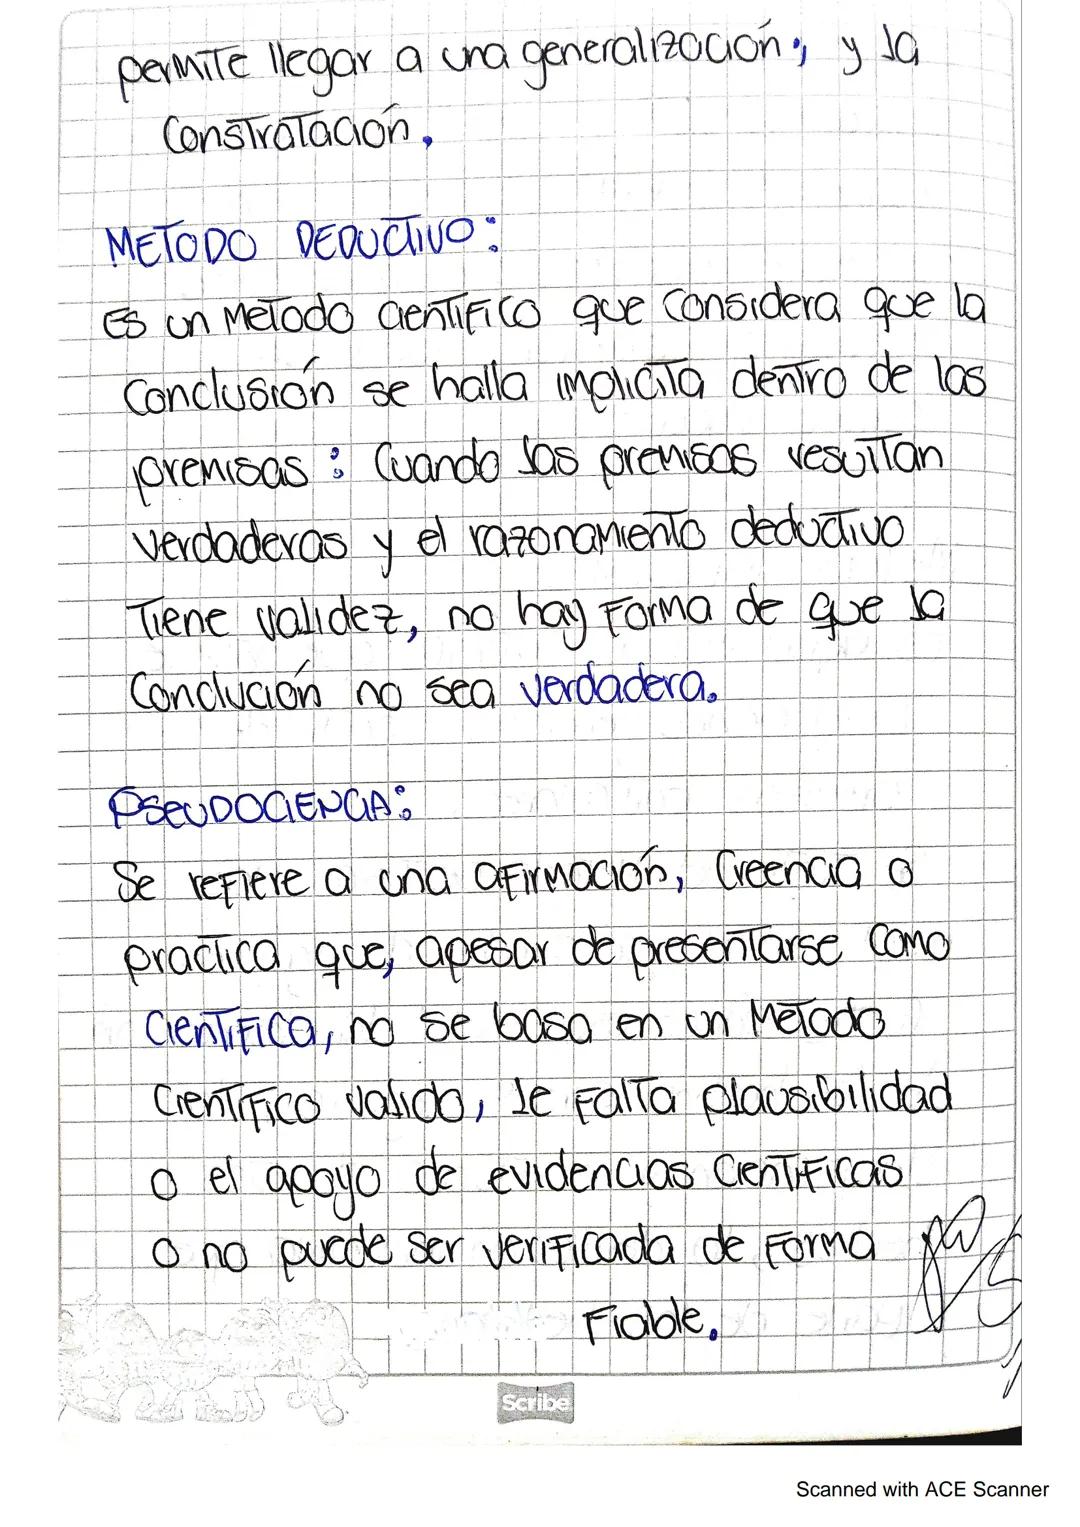 permite llegar a una generalización; y la
Constratación.
METODO DEDUCTIVO:
Es un Metodo cientifico que considera que la
Conclusión se halla implicita dentro de las
premisas: Cuando las premisas resultan
verdaderas y el razonamiento deductivo
Tiene validez, no hay Forma de que la
Conclución no sea verdadera.
PSEUDOCIENCIA:
Se refiere a una afirmación, Creencia o
practica que, apesar de presentarse como
Cientifica, no se basa en un Metodo
Cientifico valido, le Falta plausibilidad
o el apoyo de evidencias Cientificas
o no puede ser verificada de Forma
Fiable.
Scribe
Scanned with ACE Scanner